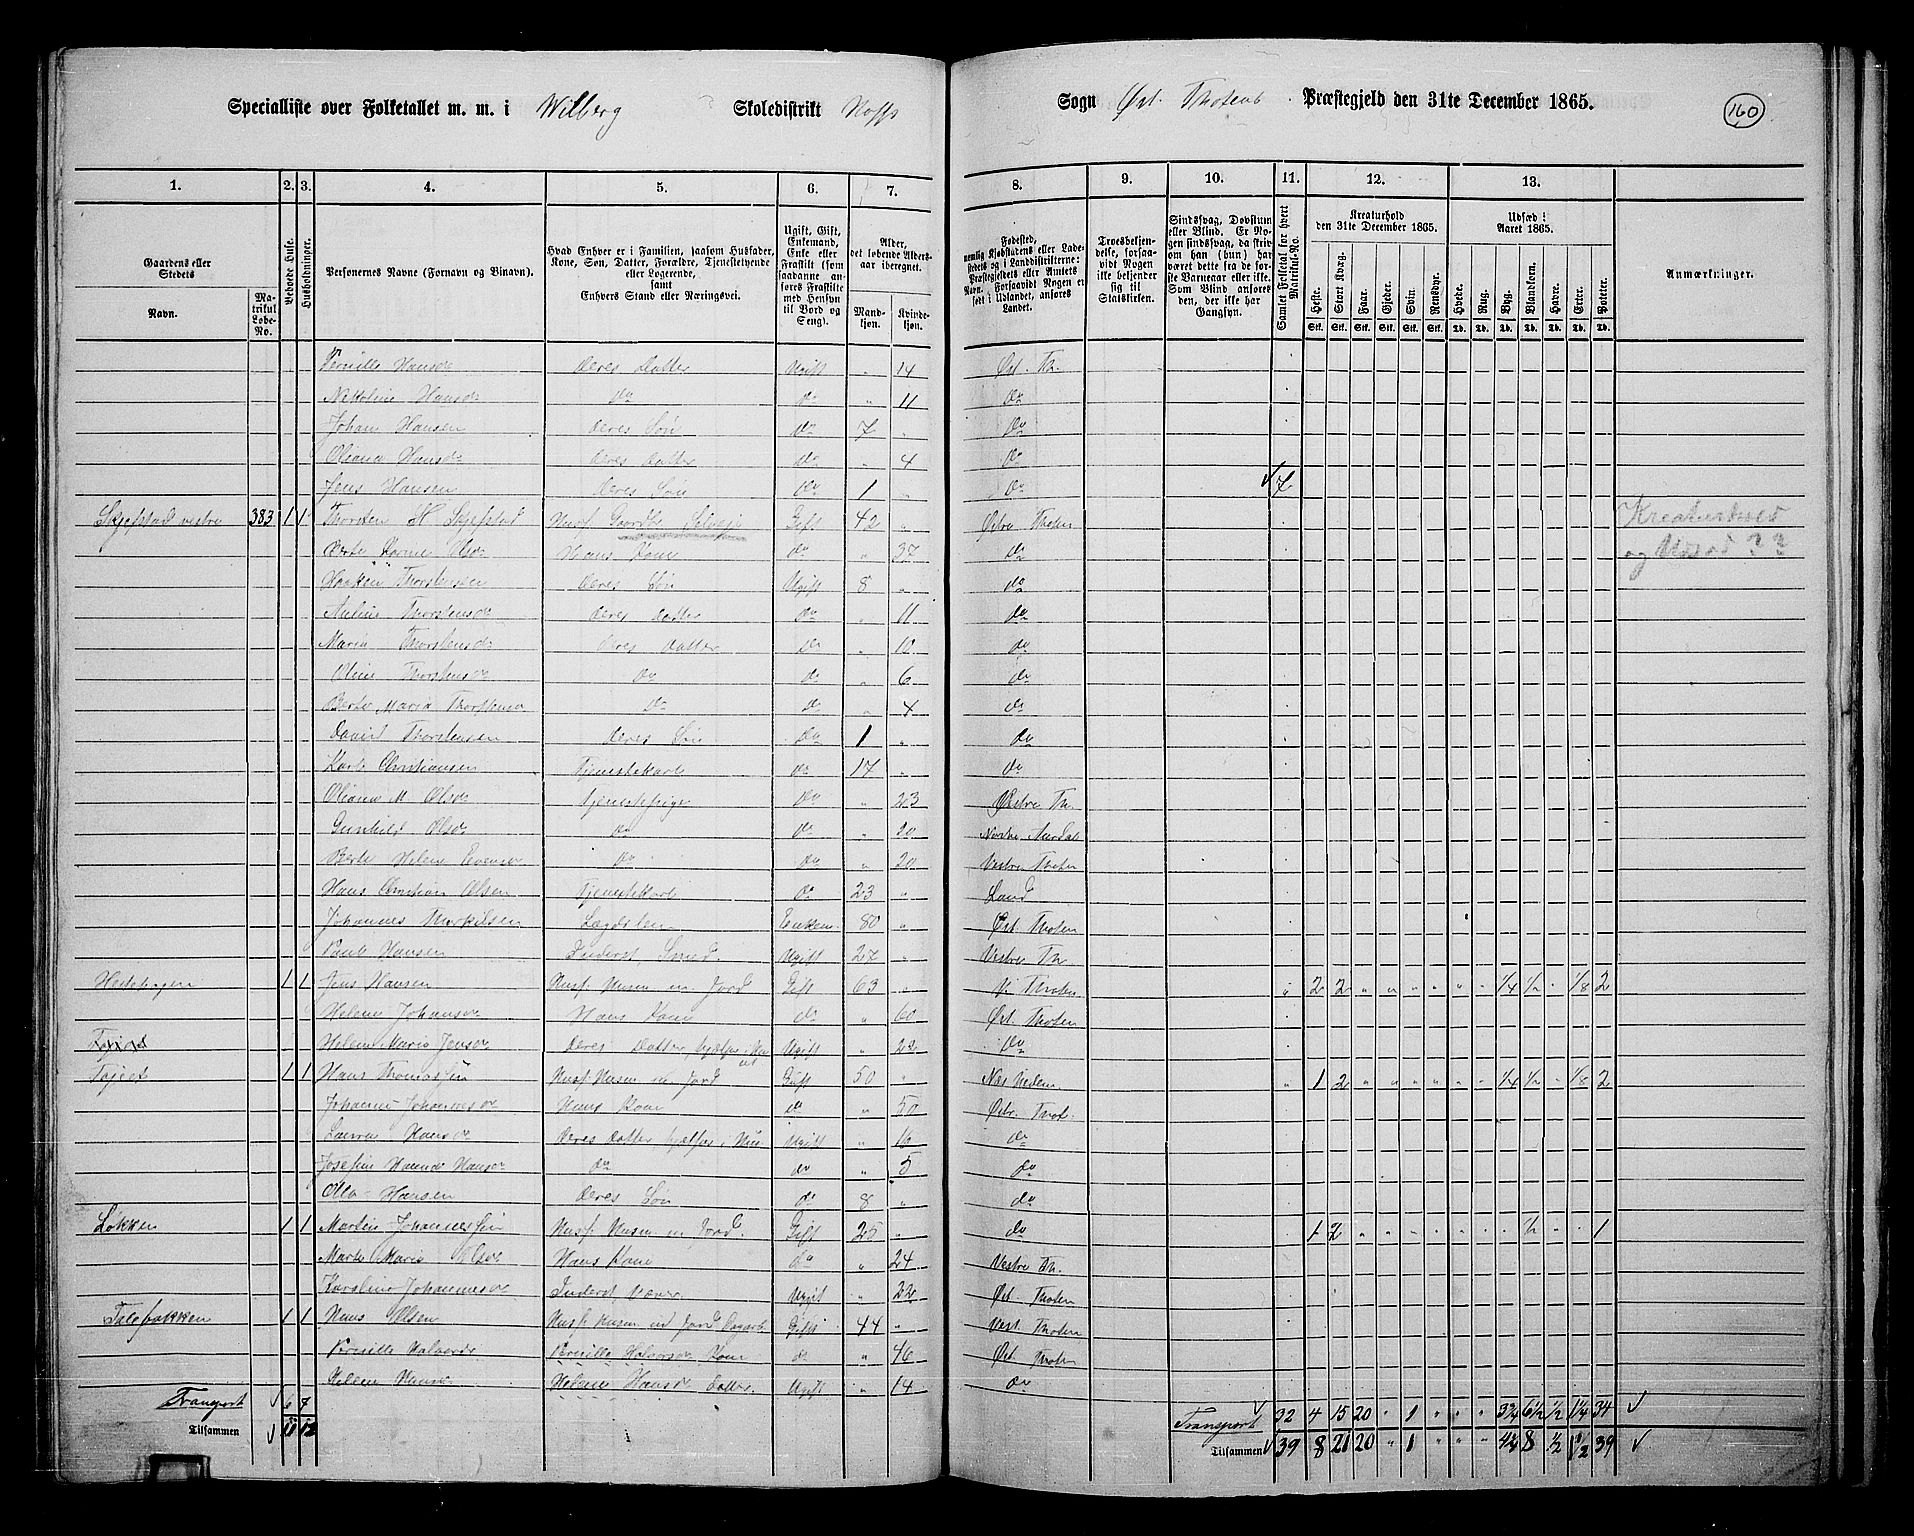 Specialliste over Folketallet m. m. i Wilberg Skoledistrikt Hoffs Sogn Øst. Thotens Præstegjeld den 31te December 1865. 160
1. 2. 3. 4. 5. 6. 7. 8. 9. 10. 11. 12. 13.
Gaardens eller Stedets
Navn.
Matrikul Løbe-No.
Beboede Huse.
Husholdninger.
Personernes Navne (Fornavn og Binavn).
Hvad Enhver er i Familien, saasom Husfader, Kone, Søn, Datter, Forældre, Tjenestetyende eller Logerende, samt Enhvers Stand eller Næringsvei.
Ugift, Gift, Enkemand, Enke eller Fraskilt (som saadanne anføres Fraskilte med Hensyn til Bord og Seng).
Alder, det løbende Aldersaar iberegnet.
Mandkjøn. Kvindekjøn.
Fødested,
Troesbekjendelse, forsaavidt Nogen ikke bekjender sig til Statskirken.
Sindssvag, Døvstum eller Blind. Er Nogen sindssvag, da skrives om han (hun) har været dette fra første Barneaar eller ikke. Som Blind anføres den, der ikke har Gangsyn.
Samlet Folketal for hvert Matrikul-No.
Kreaturhold den 31te December 1865.
Heste. Stort Kvæg. Faar. Gjeder. Svin. Rensdyr.
Udsæd i Aaret 1865.
Hvede. Rug. Byg. Blandkorn. Havre. Erter. Poteter.
Anmærkninger.
Pernille Hansd deres Datter Ugift " 14 Øst. Th.
Nikoline Hansd do do " 11 do
Johan Hansen deres Søn do 7 " do
Oliana Hansd deres Datter do " 4 do
Jens Hansen deres Søn do 1 " do 7
Skjefstad vestre 383 1 1 Thorsten H Skjefstad Husf. Gaardbr. Selveje Gift 42 " Østre Thoten Kreaturhold
Berte Karine Olsd Hans Kone do " 37 do og Udsæd ??
Haaken Thorstensen deres Søn Ugift 8 " do
Auline Thorstensd deres Datter do " 11 do
Maria Thorstensd deres Datter do " 10 do
Oline Thorstensd do do " 6 do
Berte Maria Thorstensd do do " 4 do
Davit Thorstensen deres Søn do 1 " do
Karl Christiansen Tjenestekarl do 17 " do
Oliana M Olsd Tjenestepige do " 23 Østre Th.
Gunhild Olsd do do " 20 Norde Aurdal
Berte Helene Evensd do do " 20 Vestre Thoten
Hans Christian Olsen Tjenestekarl do 23 " Land
Johannes Thorkilsen Lægdslem Enkem. 80 " Øst. Thoten
Paul Hansen Inderst, Smed Ugift 27 " Vestre Th
Heidehagen 1 1 Jens Hansen Husf. Husm. m Jord Gift 63 " V. Thoten " 2 2 " " " " " " 1/4 1/2 " 1/8 2
Helene Johansd Hans Kone do " 60 Øst. Thoten
Helene Maria Jensd deres Datter, Ugift " 22 do
Tajet 1 1 Hans Thomassen Husf. Husm. m Jord Gift 50 " Næs Hedem " 1 2 " " " " " " 1/4 1/2 " 1/8 2
Johanne Johannesd Hans Kone do " 50 Østr. Thot.
Laura Hansd deres Datter hjælper i Hus Ugift " 16 do
Josefine Hanna Hansd do do " 5 do
Olla Hansen deres Søn do 8 " do
Løkken 1 1 Martin Johannessen Husf. Husm. m Jord. Gift 25 " do 1 2 " " " " " " " 1/2 " " 1
Marte Maria Olsd Hans Kone do " 24 Vestre Th.
Karoline Johannesd Inderst Væver Ugift " 22 Øst. Thoten
1 1 Hans Olsen Husf. Husm. m Jord Dagarb. Gift 44 " Vest. Thoten
Pernille Halvorsd Pernille Halvorsd Kone do " 46 Øst. Thoten
Helene Hansd Helene Hansd Datter. Ugift " 14 do
Transport 6 7 Transport 32 4 15 20 " 1 " " " 3 3/4 6 1/2 1/2 1 1/4 34
Tilsammen 11 12 Tilsammen 39 8 21 20 " 1 " " " 4 1/4 8 1/2 1 1/2 39